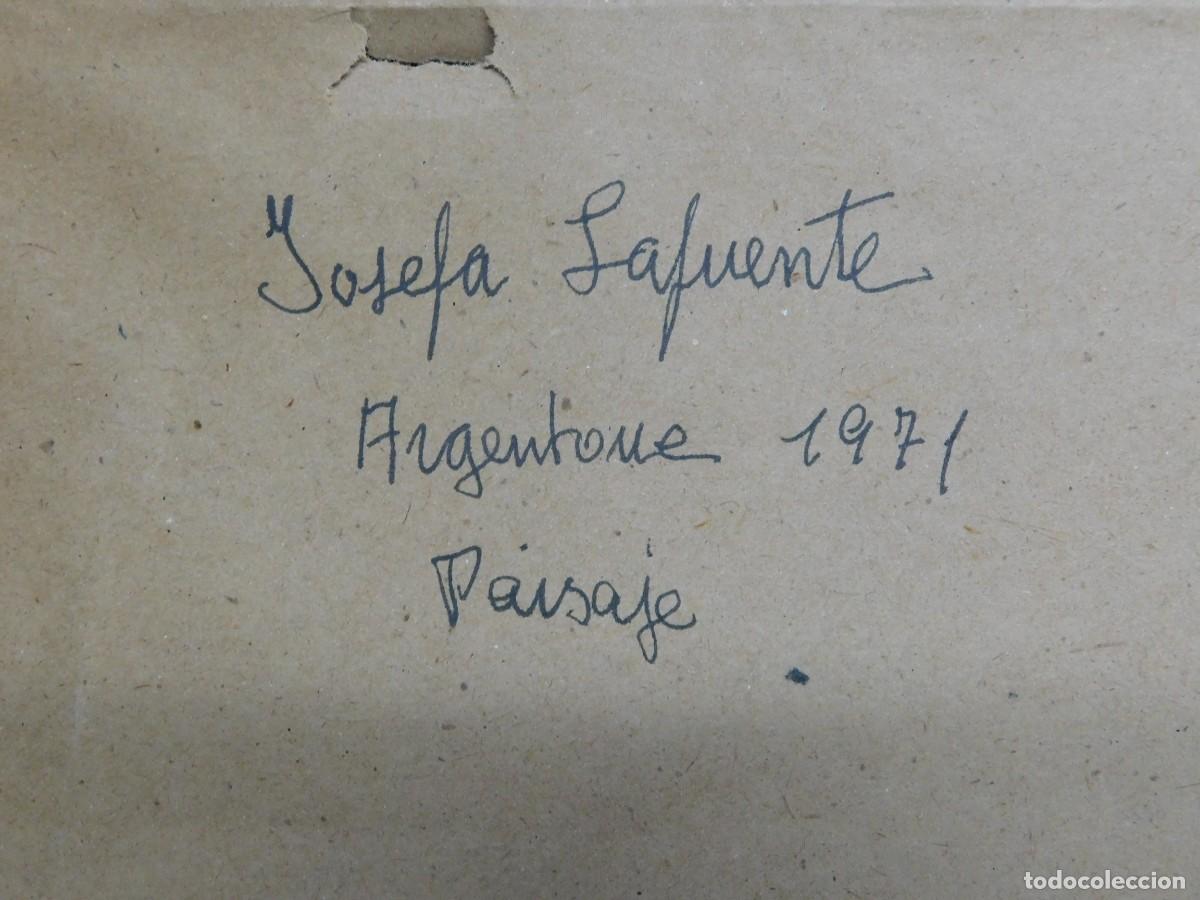 Josefa Lafuente
Argentone 1971
Paisaje
todocoleccion